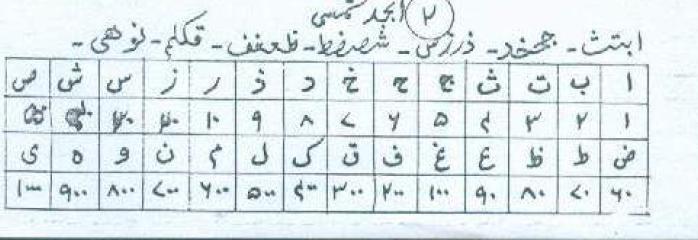 ۲ ابجد شمسی
ابتث - جحخد - ذرزس - شصضط - ظعغف - قکلم - نوهی -
ا ب ت ث ج ح خ د ذ ر ز س ش ص
۱ ۲ ۳ ۴ ۵ ۶ ۷ ۸ ۹ ۱۰ ۲۰ ۳۰
ض ط ظ ع غ ف ق ک ل م ن و ه ی
۶۰ ۷۰ ۸۰ ۹۰ ۱۰۰ ۲۰۰ ۳۰۰ ۴۰۰ ۵۰۰ ۶۰۰ ۷۰۰ ۸۰۰ ۹۰۰ ۱۰۰۰